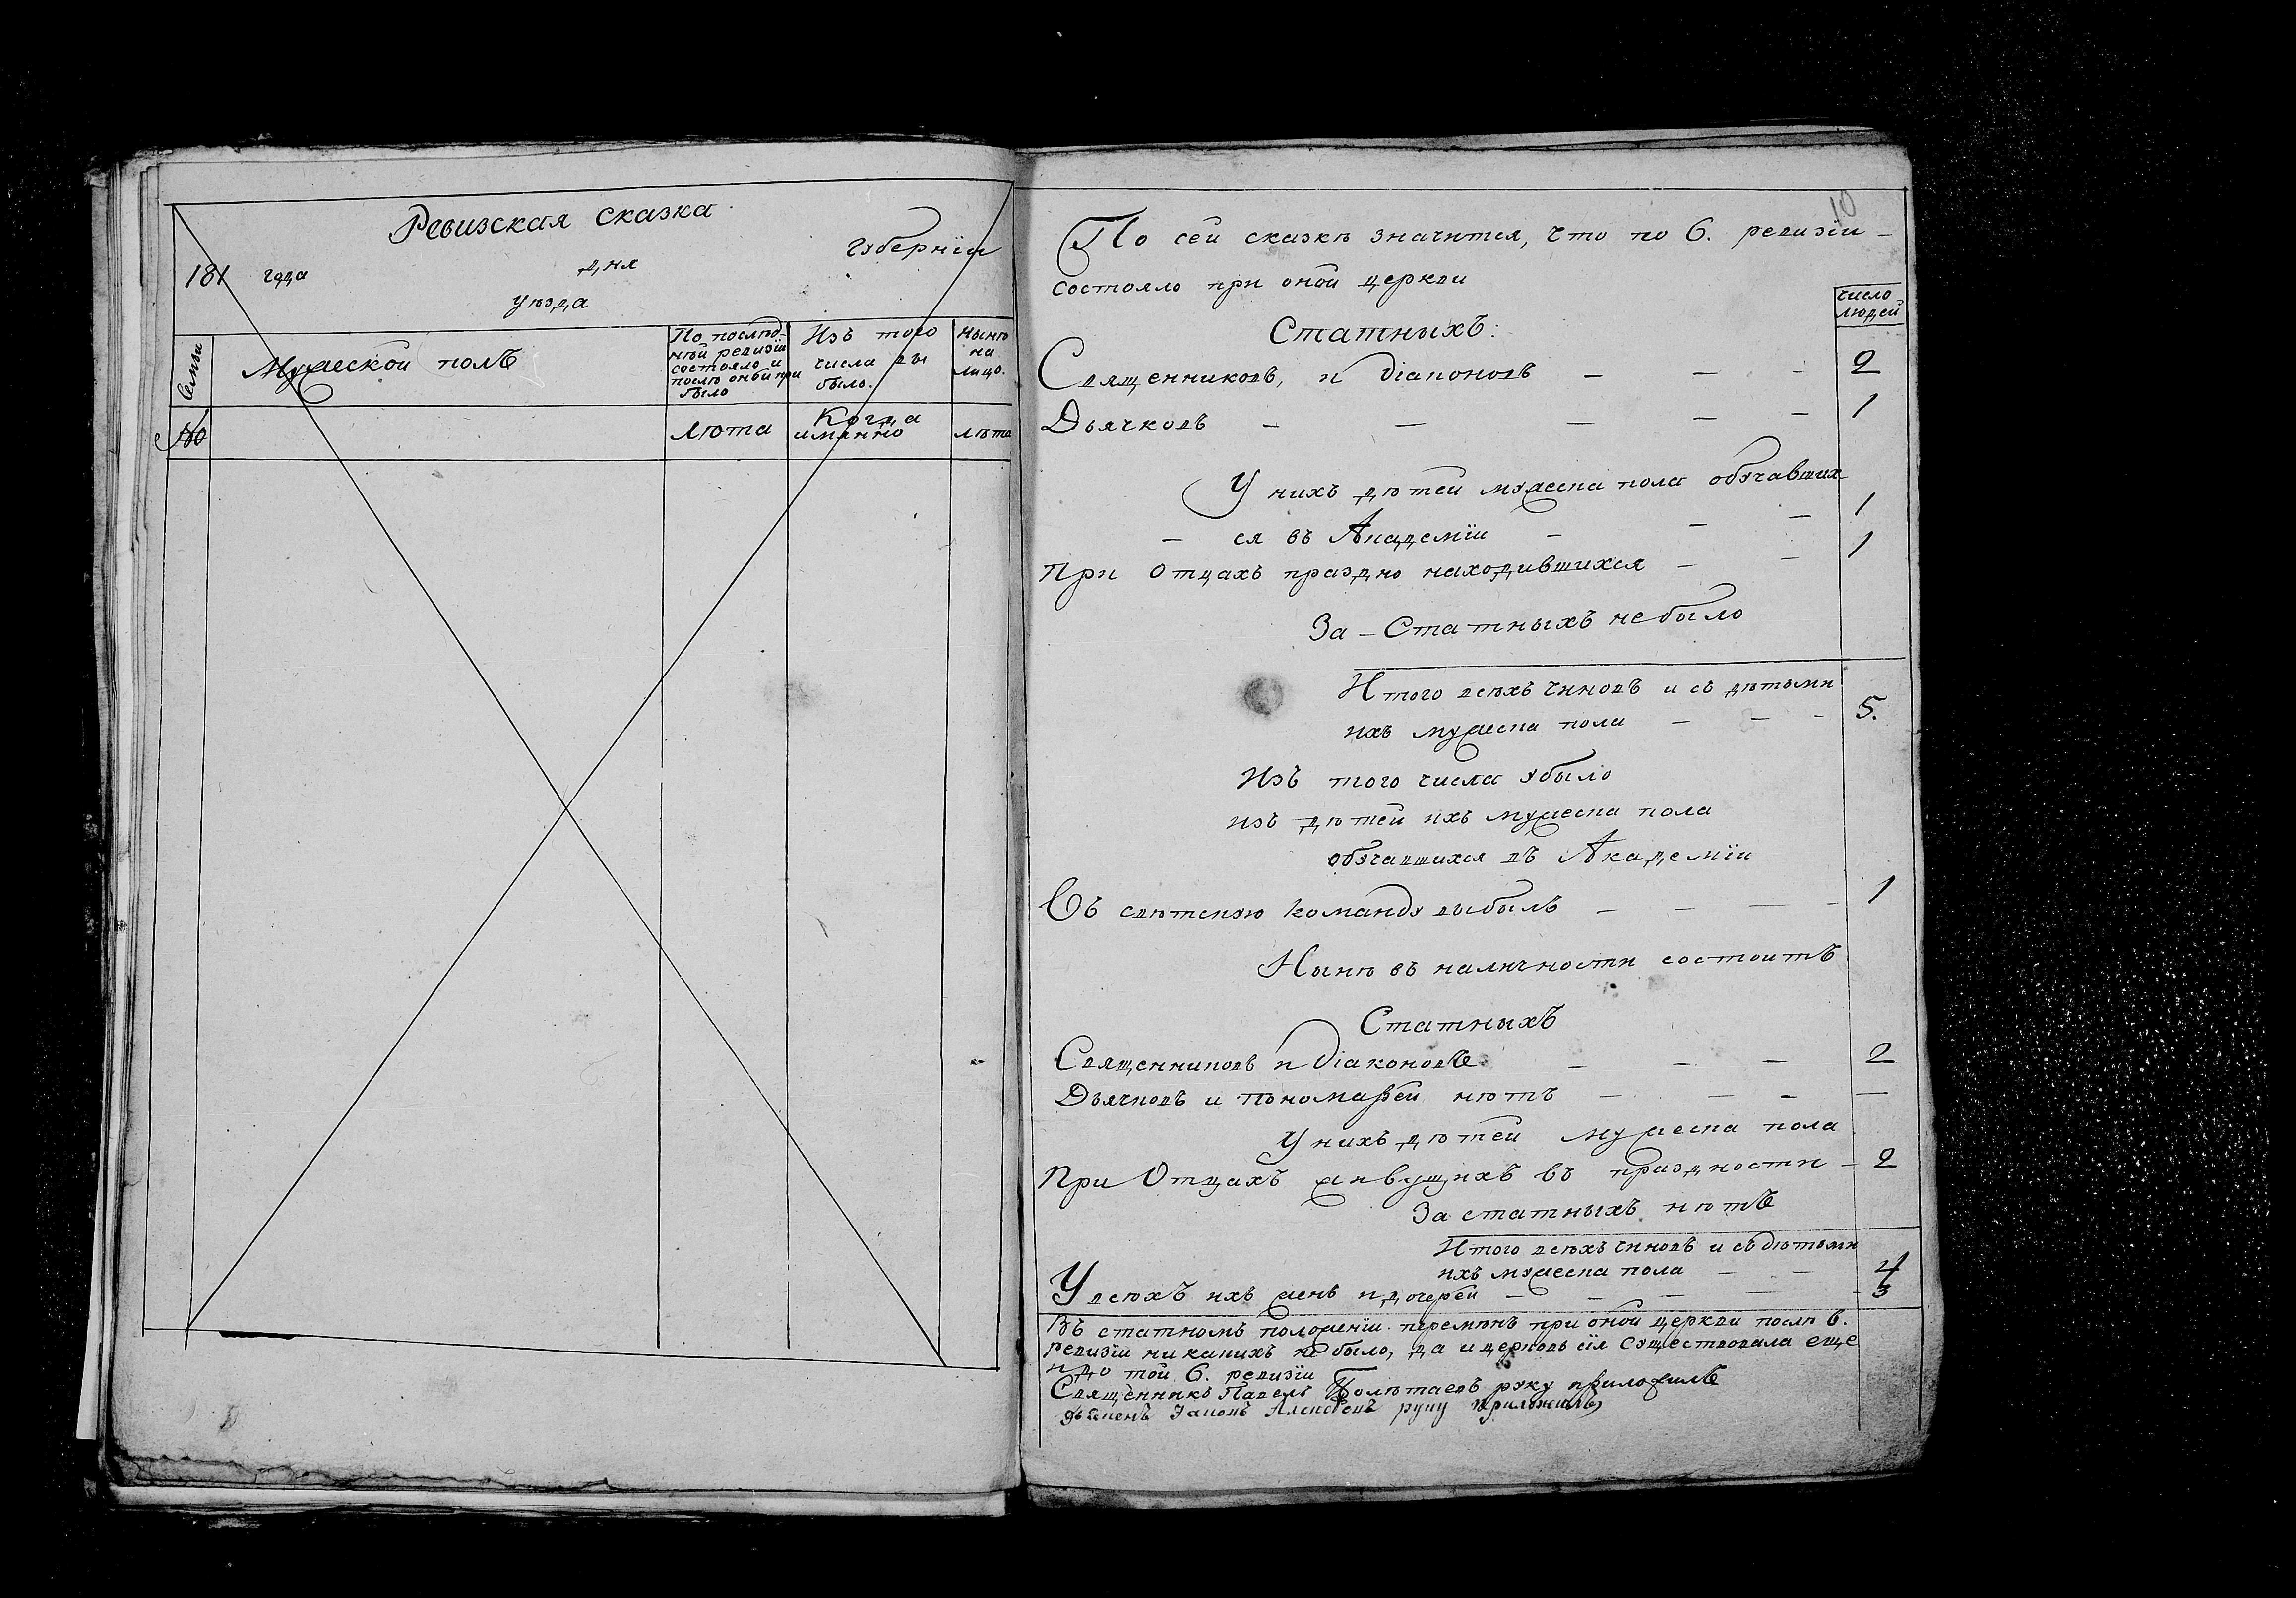 Ревизская сказка
181 года дня Губернїи
уѣзда
Семьи
Мужеской полъ
По послѣд-
нѣй ревизїи
состояло и
послѣ оной при
было
Изъ того
числа вы
было.
Нынѣ
на
лицо.
№
лѣта
Когда
имянно
лѣта
10
По сей сказкѣ значится, что по 6. ревизїи -
состояло при оной церкви
число
людей
Статныхъ:
Священниковъ, и діаконовъ — — - 2
Дьячковъ — — — — — 1
У нихъ дѣтей мужеска пола обучавших
— ся въ Академїи — — — 1
При отцахъ праздно находившихся — — 1
За-Статныхъ небыло
Итого всѣхъ чиновъ и съ дѣтьми
ихъ мужеска пола — — - 5.
Изъ того числа убыло
изъ дѣтей ихъ мужеска пола
обучавшихся въ Академїи
Въ свѣтскую команду выбылъ — — — - 1
Нынѣ въ наличности состоитъ
Статныхъ
Священниковъ и діаконовъ — — — 2
Дьячковъ и пономарей нѣтъ — — - —
У нихъ дѣтей мужеска пола
При Отцахъ живущихъ въ праздности - 2
За статныхъ нѣтъ
Итого всѣхъ чиновъ и съ дѣтьми
ихъ мужеска пола — — 4
У всѣхъ ихъ женъ и дочерей — — — — - 3
Въ статномъ положенїи перемѣнъ при оной церкви послѣ 6.
ревизїи никакихъ не было, да и церковь сїя существовала еще
и до той 6. ревизїи
Священникъ Павелъ Полѣтаевъ руку приложилъ
Алексѣевъ руку приложилъ